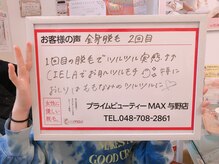 お客様の声 全身脱毛 2回目
1回目の脱毛でツルツル実感↑↑
CIELAでお肌ツルモチ
おしりはももちゃんのツルツルに
プライムビューティー MAX 与野店
TEL.048-708-2861
GOOD